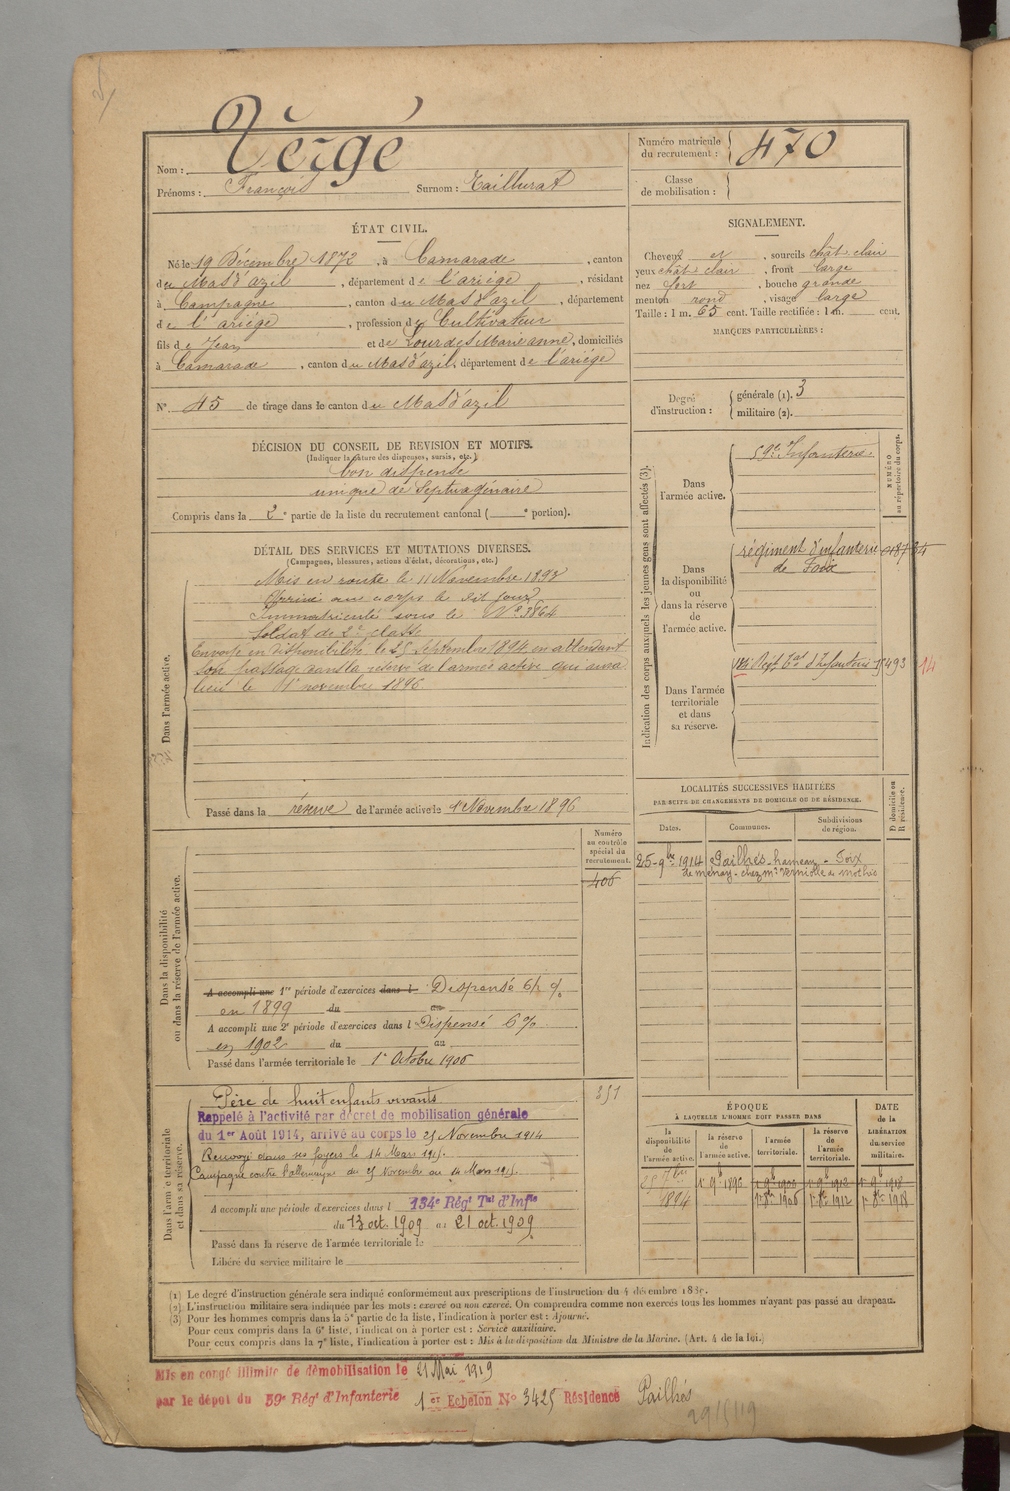 Vergé
Nom :
Prénoms : François Surnom : Taillurat
Numéro matricule du recrutement : 470
Classe de mobilisation :
ÉTAT CIVIL.
Né le 19 Décembre 1872, à Camarade, canton
du Mas d'azil, département de l'ariége, résidant
à Campagne, canton du Mas d'azil, département
de l'ariége, profession de Cultivateur
fils de Jean et de Lourdes Marie anne, domiciliés
à Camarade, canton du Mas d'azil, département de l'ariége
N° 45 de tirage dans le canton du Mas d'azil
SIGNALEMENT.
Cheveux et, sourcils chât clair
yeux chât clair, front large
nez fort, bouche grande
menton rond, visage large
Taille : 1 m. 65 cent. Taille rectifiée : 1 m. cent.
MARQUES PARTICULIÈRES :
Degré d'instruction : générale (1). 3
militaire (2).
DÉCISION DU CONSEIL DE REVISION ET MOTIFS.
(Indiquer la nature des dispenses, sursis, etc.)
bon dispensé
unique de Septuagénaire
Compris dans la 2e partie de la liste du recrutement cantonal ( e portion).
DÉTAIL DES SERVICES ET MUTATIONS DIVERSES.
(Campagnes, blessures, actions d'éclat, décorations, etc.)
Dans l'armée active.
Mis en route le 11 Novembre 1893
Arrivé au corps le dit jour
Immatriculé sous le N° 3864
Soldat de 2e classe
Envoyé en disponibilité le 25 Septembre 1894 en attendant
son passage dans la réserve de l'armée active qui aura
lieu le 1r novembre 1896
Passé dans la réserve de l'armée active le 1r Novembre 1896
Indication des corps auxquels les jeunes gens sont affectés (3).
NUMÉRO au répertoire du corps.
Dans l'armée active.
59e Infanterie
Dans la disponibilité ou dans la réserve de l'armée active.
régiment d'infanterie
de Foix
Dans l'armée territoriale et dans sa réserve.
14
LOCALITÉS SUCCESSIVES HABITÉES
PAR SUITE DE CHANGEMENTS DE DOMICILE OU DE RÉSIDENCE.
Dates. Communes. Subdivisions de région. D domicile ou R résidence.
25-9bre 1914 Pailhés-hameau - Foix
Dans la disponibilité ou dans la réserve de l'armée active.
Numéro au contrôle spécial du recrutement.
406
A accompli une 1re période d'exercices dans l Dispensé 6%
en 1899 du au
A accompli une 2e période d'exercices dans l Dispensé 6%
en 1902 du au
Passé dans l'armée territoriale le 1r Octobre 1906
Dans l'armée territoriale et dans sa réserve.
351
Père de huit enfants vivants
Rappelé à l'activité par décret de mobilisation générale
du 1er Août 1914, arrivé au corps le 25 Novembre 1914
Renvoyé dans ses foyers le 14 Mars 1915.
Campagne contre l'allemagne du 25 Novembre au 14 Mars 1915.
A accompli une période d'exercices dans l 134e Régt Tal d'Infie
du 13 oct. 1909 au 21 oct. 1909
Passé dans la réserve de l'armée territoriale le
Libéré du service militaire le
ÉPOQUE
À LAQUELLE L'HOMME DOIT PASSER DANS
DATE de la LIBÉRATION du service militaire.
la disponibilité de l'armée active. la réserve de l'armée active. l'armée territoriale. la réserve de l'armée territoriale.
25 7bre 1r 9b 1896 1r 9b 1906 1r 9b 1912 1r 9b 1918
1894 1r 8bre 1906 1r 8bre 1912 1r 8bre 1918
(1) Le degré d'instruction générale sera indiqué conformément aux prescriptions de l'instruction du 4 décembre 1889.
(2) L'instruction militaire sera indiquée par les mots : exercé ou non exercé. On comprendra comme non exercés tous les hommes n'ayant pas passé au drapeau.
(3) Pour les hommes compris dans la 5e partie de la liste, l'indication à porter est : Ajourné.
Pour ceux compris dans la 6e liste, l'indication à porter est : Service auxiliaire.
Pour ceux compris dans la 7e liste, l'indication à porter est : Mis à la disposition du Ministre de la Marine. (Art. 4 de la loi.)
Mis en congé illimité de démobilisation le 21 Mai 1919
par le dépôt du 59e Régt d'Infanterie 1er Echelon N° 3425 Résidence Pailhés